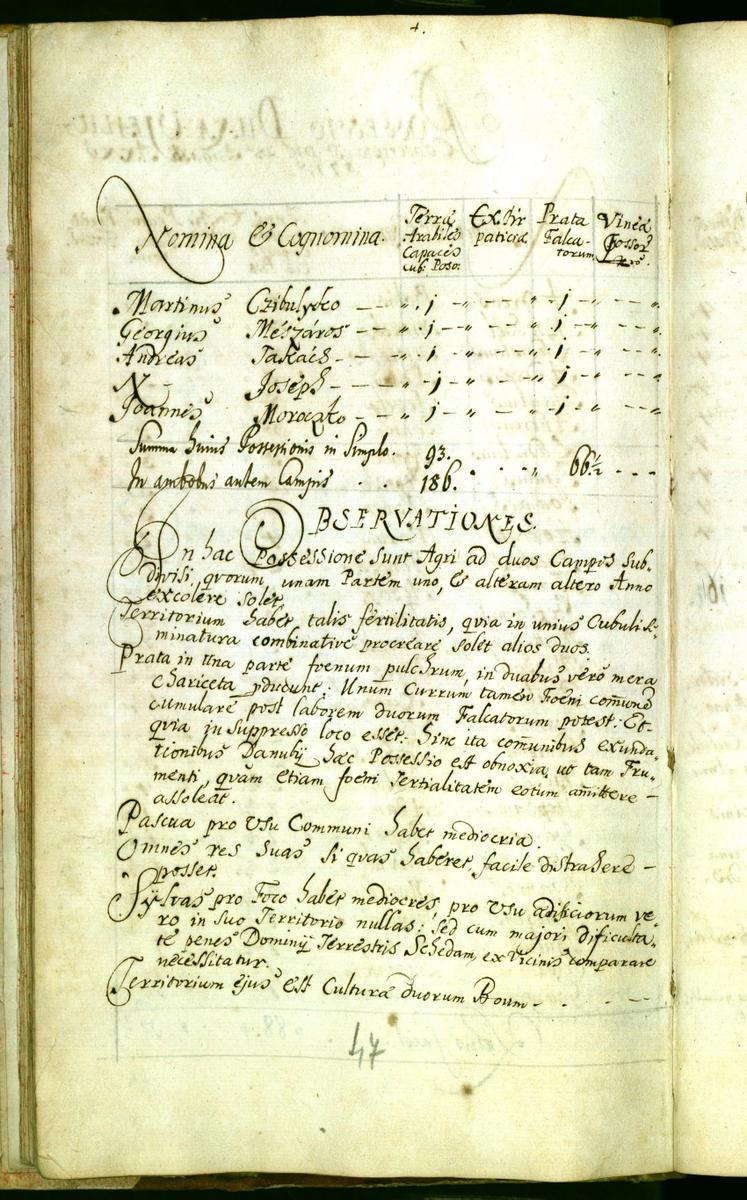 4.
Nomina & Cognomina. Terræ Arabiles Capaces Cub: Poso: Extir paticiæ Prata Falca- torum Vineæ Fossor
Martinus Czibulyko — — „ . 1 - „ - - „ . 1 - „ - - „
Georgius Mészáros — — „ . 1 - „ - - „ . 1 - „ - - „
Andreas Takács — — „ . 1 - „ - - „ . 1 - „ - - „
N — Joseph — — „ . 1 - „ - - „ . 1 - „ - - „
Joannes Moroczko — — „ . 1 - „ - - „ . 1 - „ - - „
Summa huius Possessionis in Simplo. 93. 66½
In ambobus autem Campis . . 186.
OBSERVATIONES.
In hac Possessione sunt Agri ad duos Campos sub-
divisi, qvorum unam Partem uno, & alteram altero Anno
excolere solet.
Territorium habet talis fertilitatis, qvia in unius Cubuli se-
minatura combinative procreare solet alios duos.
Prata in una parte foenum pulchrum, in duabus verò mera
chariceta pducunt: Unum Currum tamen Foeni comune
cumulare post laborem duorum Falcatorum potest. Et-
qvia in suppresso loco esset: hinc ita comunibus exunda-
tionibus Danubij hæc Possessio est obnoxia, ut tam Fru-
menti, qvam etiam foeni Tertialitatem eotum amittere —
assoleat.
Pascua pro Usu Communi habet mediocria.
Omnes res suas si qvas haberet, facile distrahere —
posset.
Sylvas pro Foco habet mediocres, pro Usu ædificiorum ve-
ro in suo Territorio nullas: sed cum majori dificulta-
te penes Dominij Terrestris Schedam, ex Vicinis comparare
necessitatur.
Territorium ejus est Culturæ duorum Boum - . - - —
47